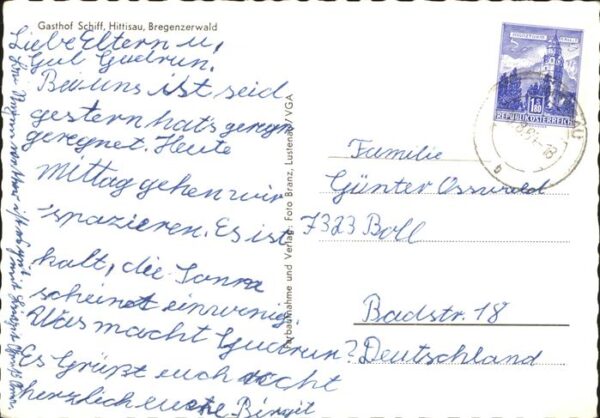 Gasthof Schiff, Hittisau, Bregenzerwald
Liebe Eltern u,
Gul Gudrun.
Bei uns ist seid
gestern hats geregn
geregnet. Heute
mittag gehen wir
spazieren. Es ist
halt, die Sonna
scheinet einwenig.
Was macht Gudrun?
Es Grüßt euch recht
herzlich euche Birgit
Farbaufnahme und Verlag: Foto Branz, Lustenau/VGA
REPUBLIK ÖSTERREICH
1.80
Familie
Günter Osswald
7323 Boll
Badstr. 18
Deutschland